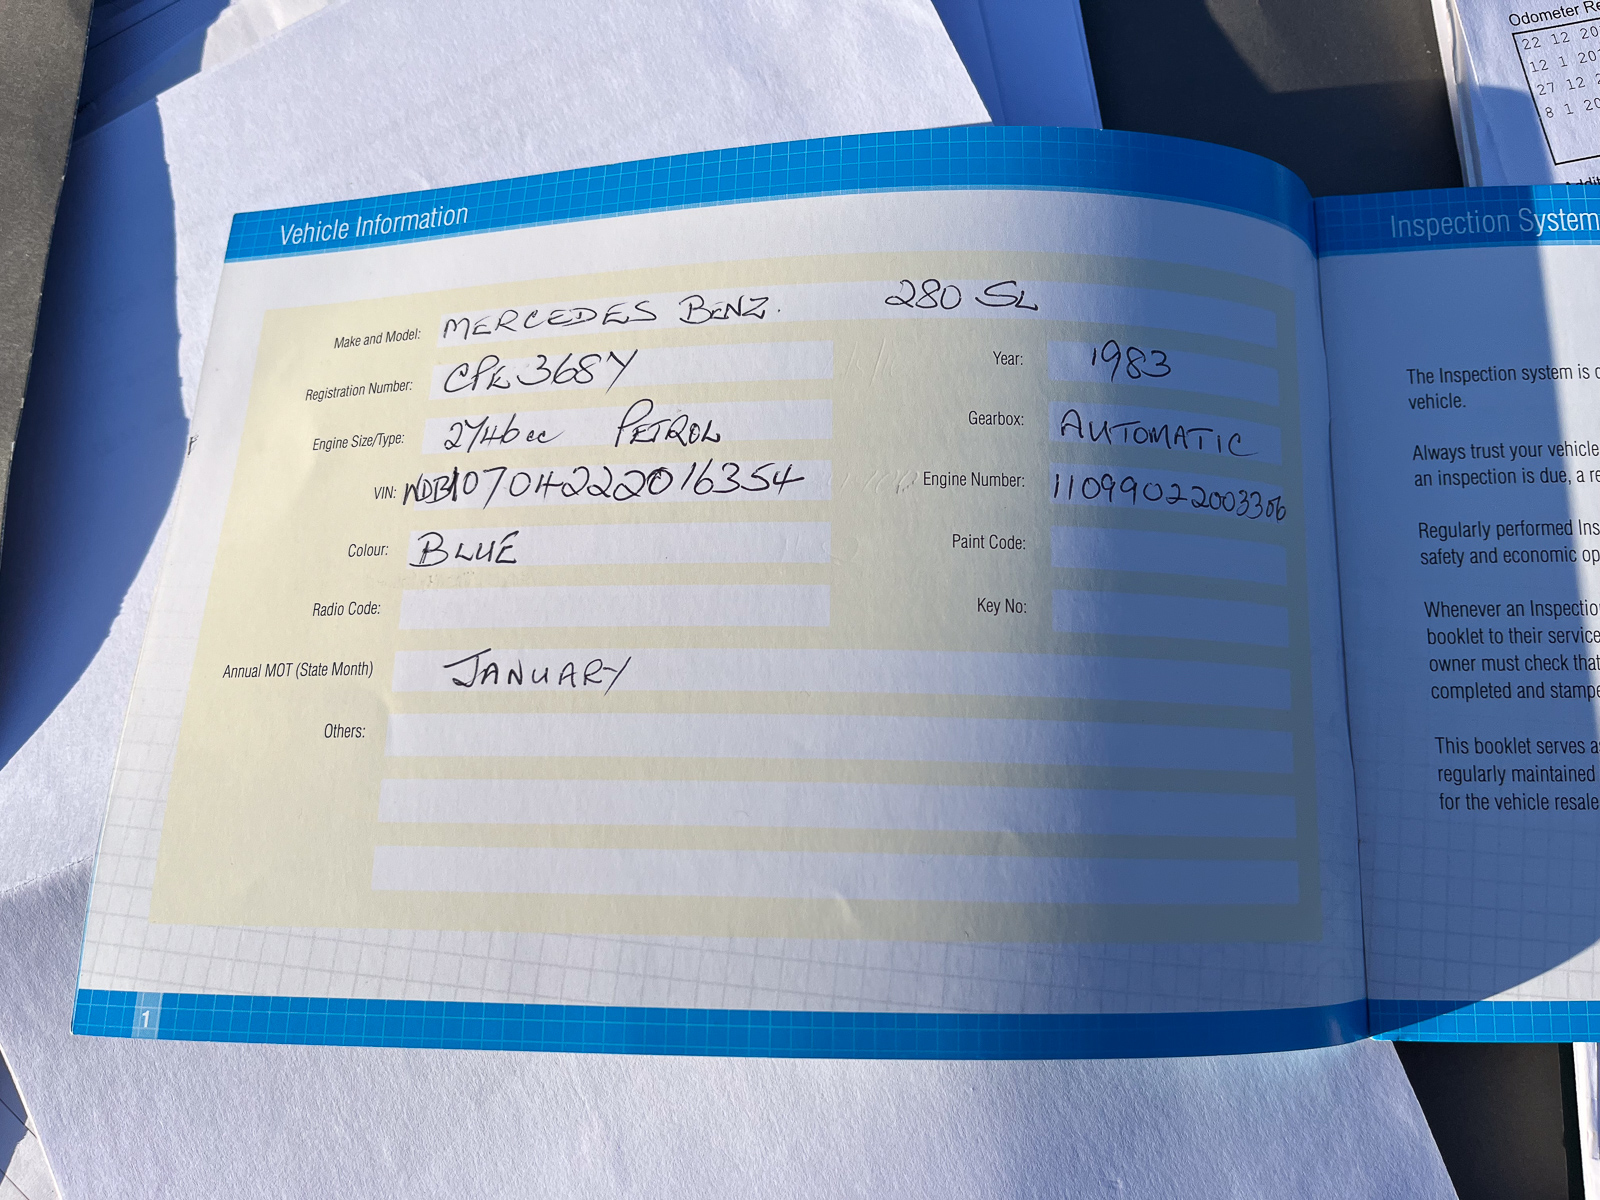 Odometer Re
22 12 20
12 1 201
27 12 2
8 1 20
Vehicle Information
Make and Model: MERCEDES BENZ. 280 SL
Registration Number: CPE 368Y
Year: 1983
Engine Size/Type: 2746cc PETROL
Gearbox: AUTOMATIC
VIN: WDB10704222016354
Engine Number: 11099022003306
Colour: BLUE
Paint Code:
Radio Code:
Key No:
Annual MOT (State Month) JANUARY
Others:
1
Inspection System
The Inspection system is
vehicle.
Always trust your vehicle
an inspection is due, a re
Regularly performed Ins
safety and economic op
Whenever an Inspection
booklet to their service
owner must check that
completed and stampe
This booklet serves a
regularly maintained
for the vehicle resale